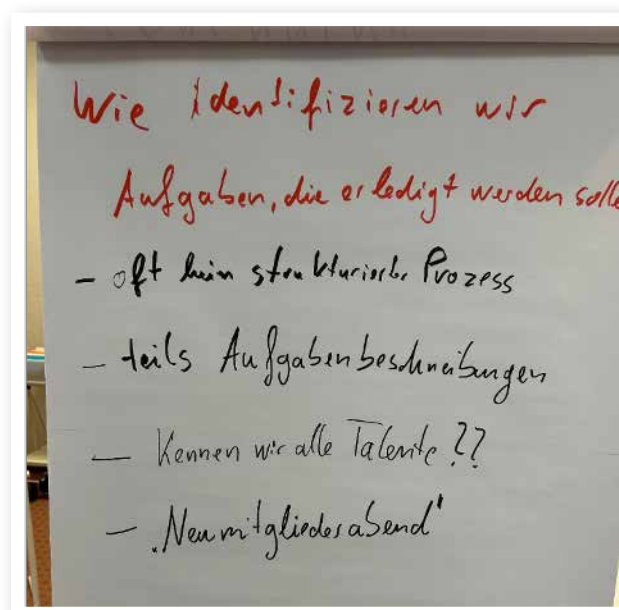 Wie Identifizieren wir
Aufgaben, die erledigt werden solle
- oft kein strukturierter Prozess
- teils Aufgabenbeschreibungen
- Kennen wir alle Talente??
- „Neumitgliederabend"